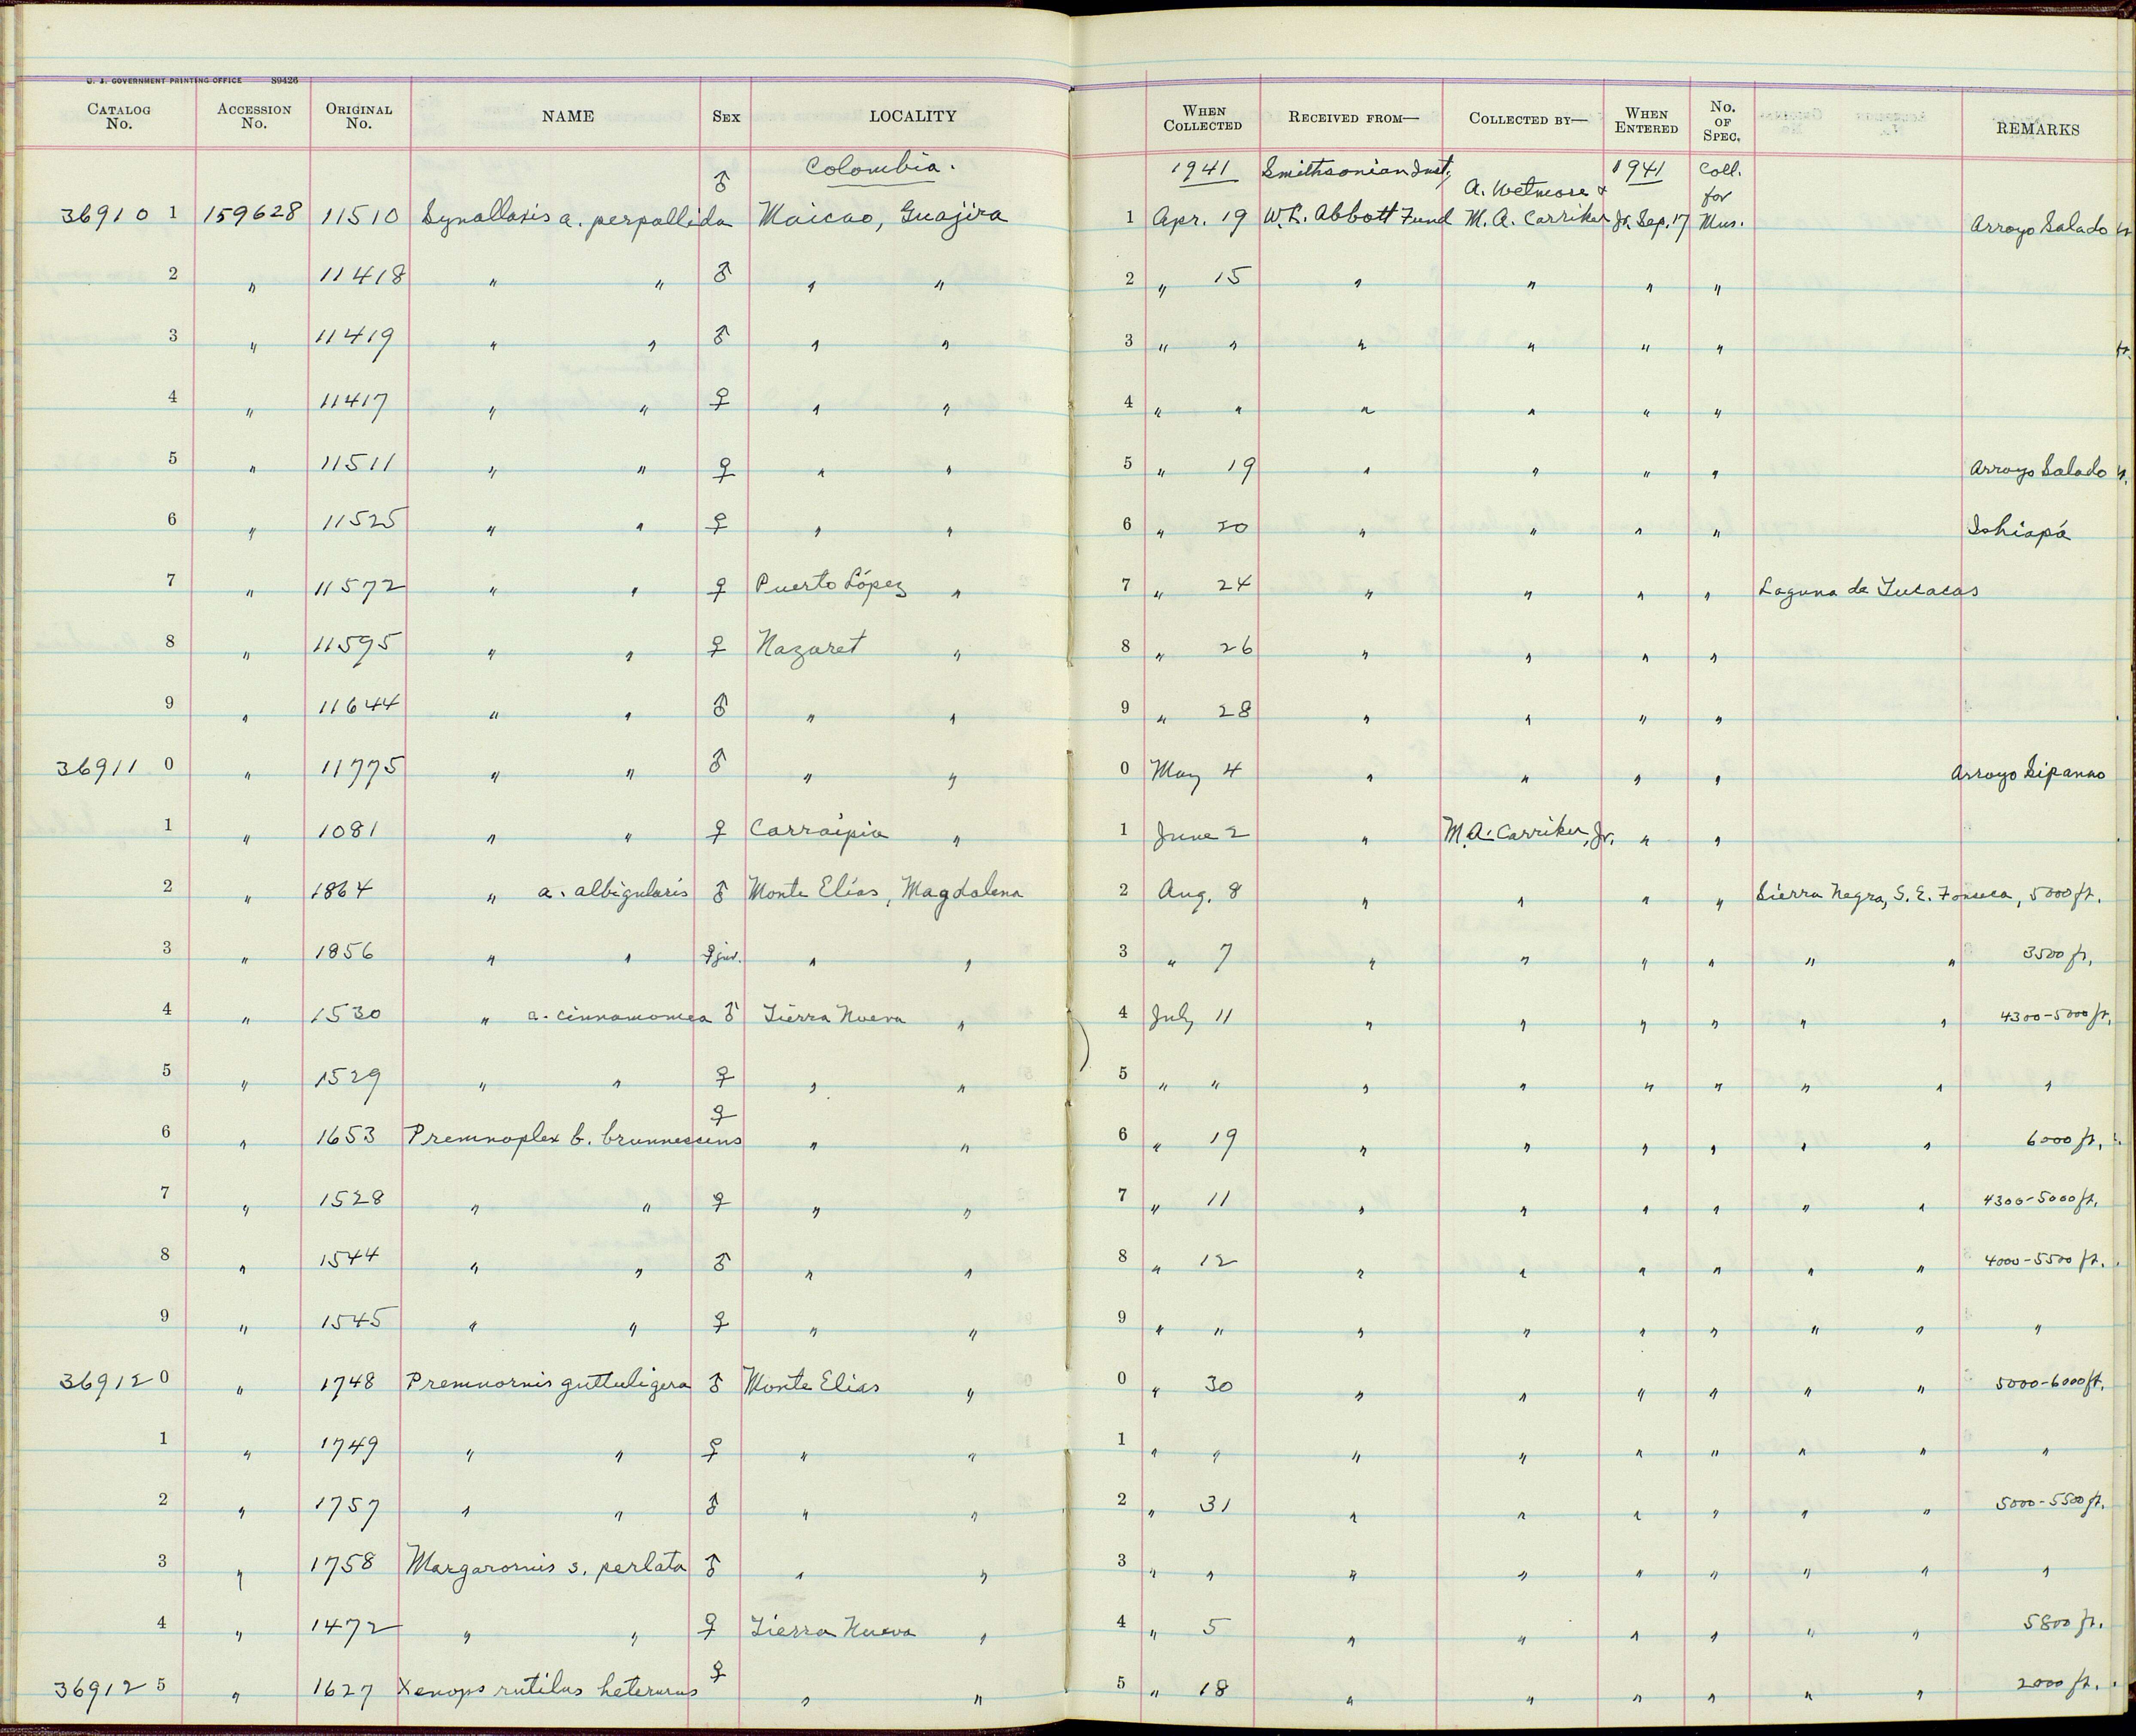 U. S. GOVERNMENT PRINTING OFFICE 89426
CATALOG No. ACCESSION No. ORIGINAL No. NAME SEX LOCALITY WHEN COLLECTED RECEIVED FROM— COLLECTED BY— WHEN ENTERED No. OF SPEC. REMARKS
Colombia. 1941 Smithsonian Inst., A. Wetmore & 1941 Coll. for
36910 1 159628 11510 Synallaxis a. perpallida ♂ Maicao, Guajira 1 Apr. 19 W. L. Abbott Fund M. A. Carriker Jr. Sep. 17 Mus. Arroyo Salado
2 " 11418 " " ♂ " " 2 " 15 " " " "
3 " 11419 " " ♂ " " 3 " " " " " "
4 " 11417 " " ♀ " " 4 " " " " " "
5 " 11511 " " ♀ " " 5 " 19 " " " " Arroyo Salado
6 " 11525 " " ♀ " " 6 " 20 " " " " Ishiapá
7 " 11572 " " ♀ Puerto López " 7 " 24 " " " " Laguna de Tucacas
8 " 11595 " " ♀ Nazaret " 8 " 26 " " " "
9 " 11644 " " ♂ " " 9 " 28 " " " "
36911 0 " 11775 " " ♂ " " 0 May 4 " " " " Arroyo Sipanao
1 " 1081 " " ♀ Carraipia " 1 June 2 " M. A. Carriker, Jr. " "
2 " 1864 " a. albigularis ♂ Monte Elías, Magdalena 2 Aug. 8 " " " " Sierra Negra, S. E. Fonseca, 5000 ft.
3 " 1856 " " ♀ juv. " " 3 " 7 " " " " " " 3500 ft.
4 " 1530 " a. cinnamomea ♂ Tierra Nueva " 4 July 11 " " " " " " 4300-5000 ft.
5 " 1529 " " ♀ " " 5 " " " " " " " " "
6 " 1653 Premnoplex b. brunnescens ♀ " " 6 " 19 " " " " " " 6000 ft.
7 " 1528 " " ♀ " " 7 " 11 " " " " " " 4300-5000 ft.
8 " 1544 " " ♂ " " 8 " 12 " " " " " " 4000-5500 ft.
9 " 1545 " " ♀ " " 9 " " " " " " " " "
36912 0 " 1748 Premnornis guttuligera ♂ Monte Elias " 0 " 30 " " " " " " 5000-6000 ft.
1 " 1749 " " ♀ " " 1 " " " " " " " " "
2 " 1757 " " ♂ " " 2 " 31 " " " " " " 5000-5500 ft.
3 " 1758 Margarornis s. perlata ♂ " " 3 " " " " " " " " "
4 " 1472 " " ♀ Tierra Nueva " 4 " 5 " " " " " " 5800 ft.
36912 5 " 1627 Xenops rutilus heterurus ♀ " " 5 " 18 " " " " " " 2000 ft.